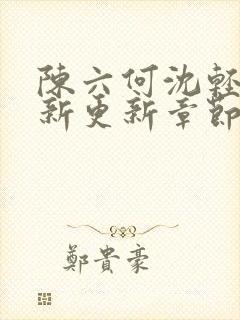 陳六何沈輕
新更新章節
鄭貴豪